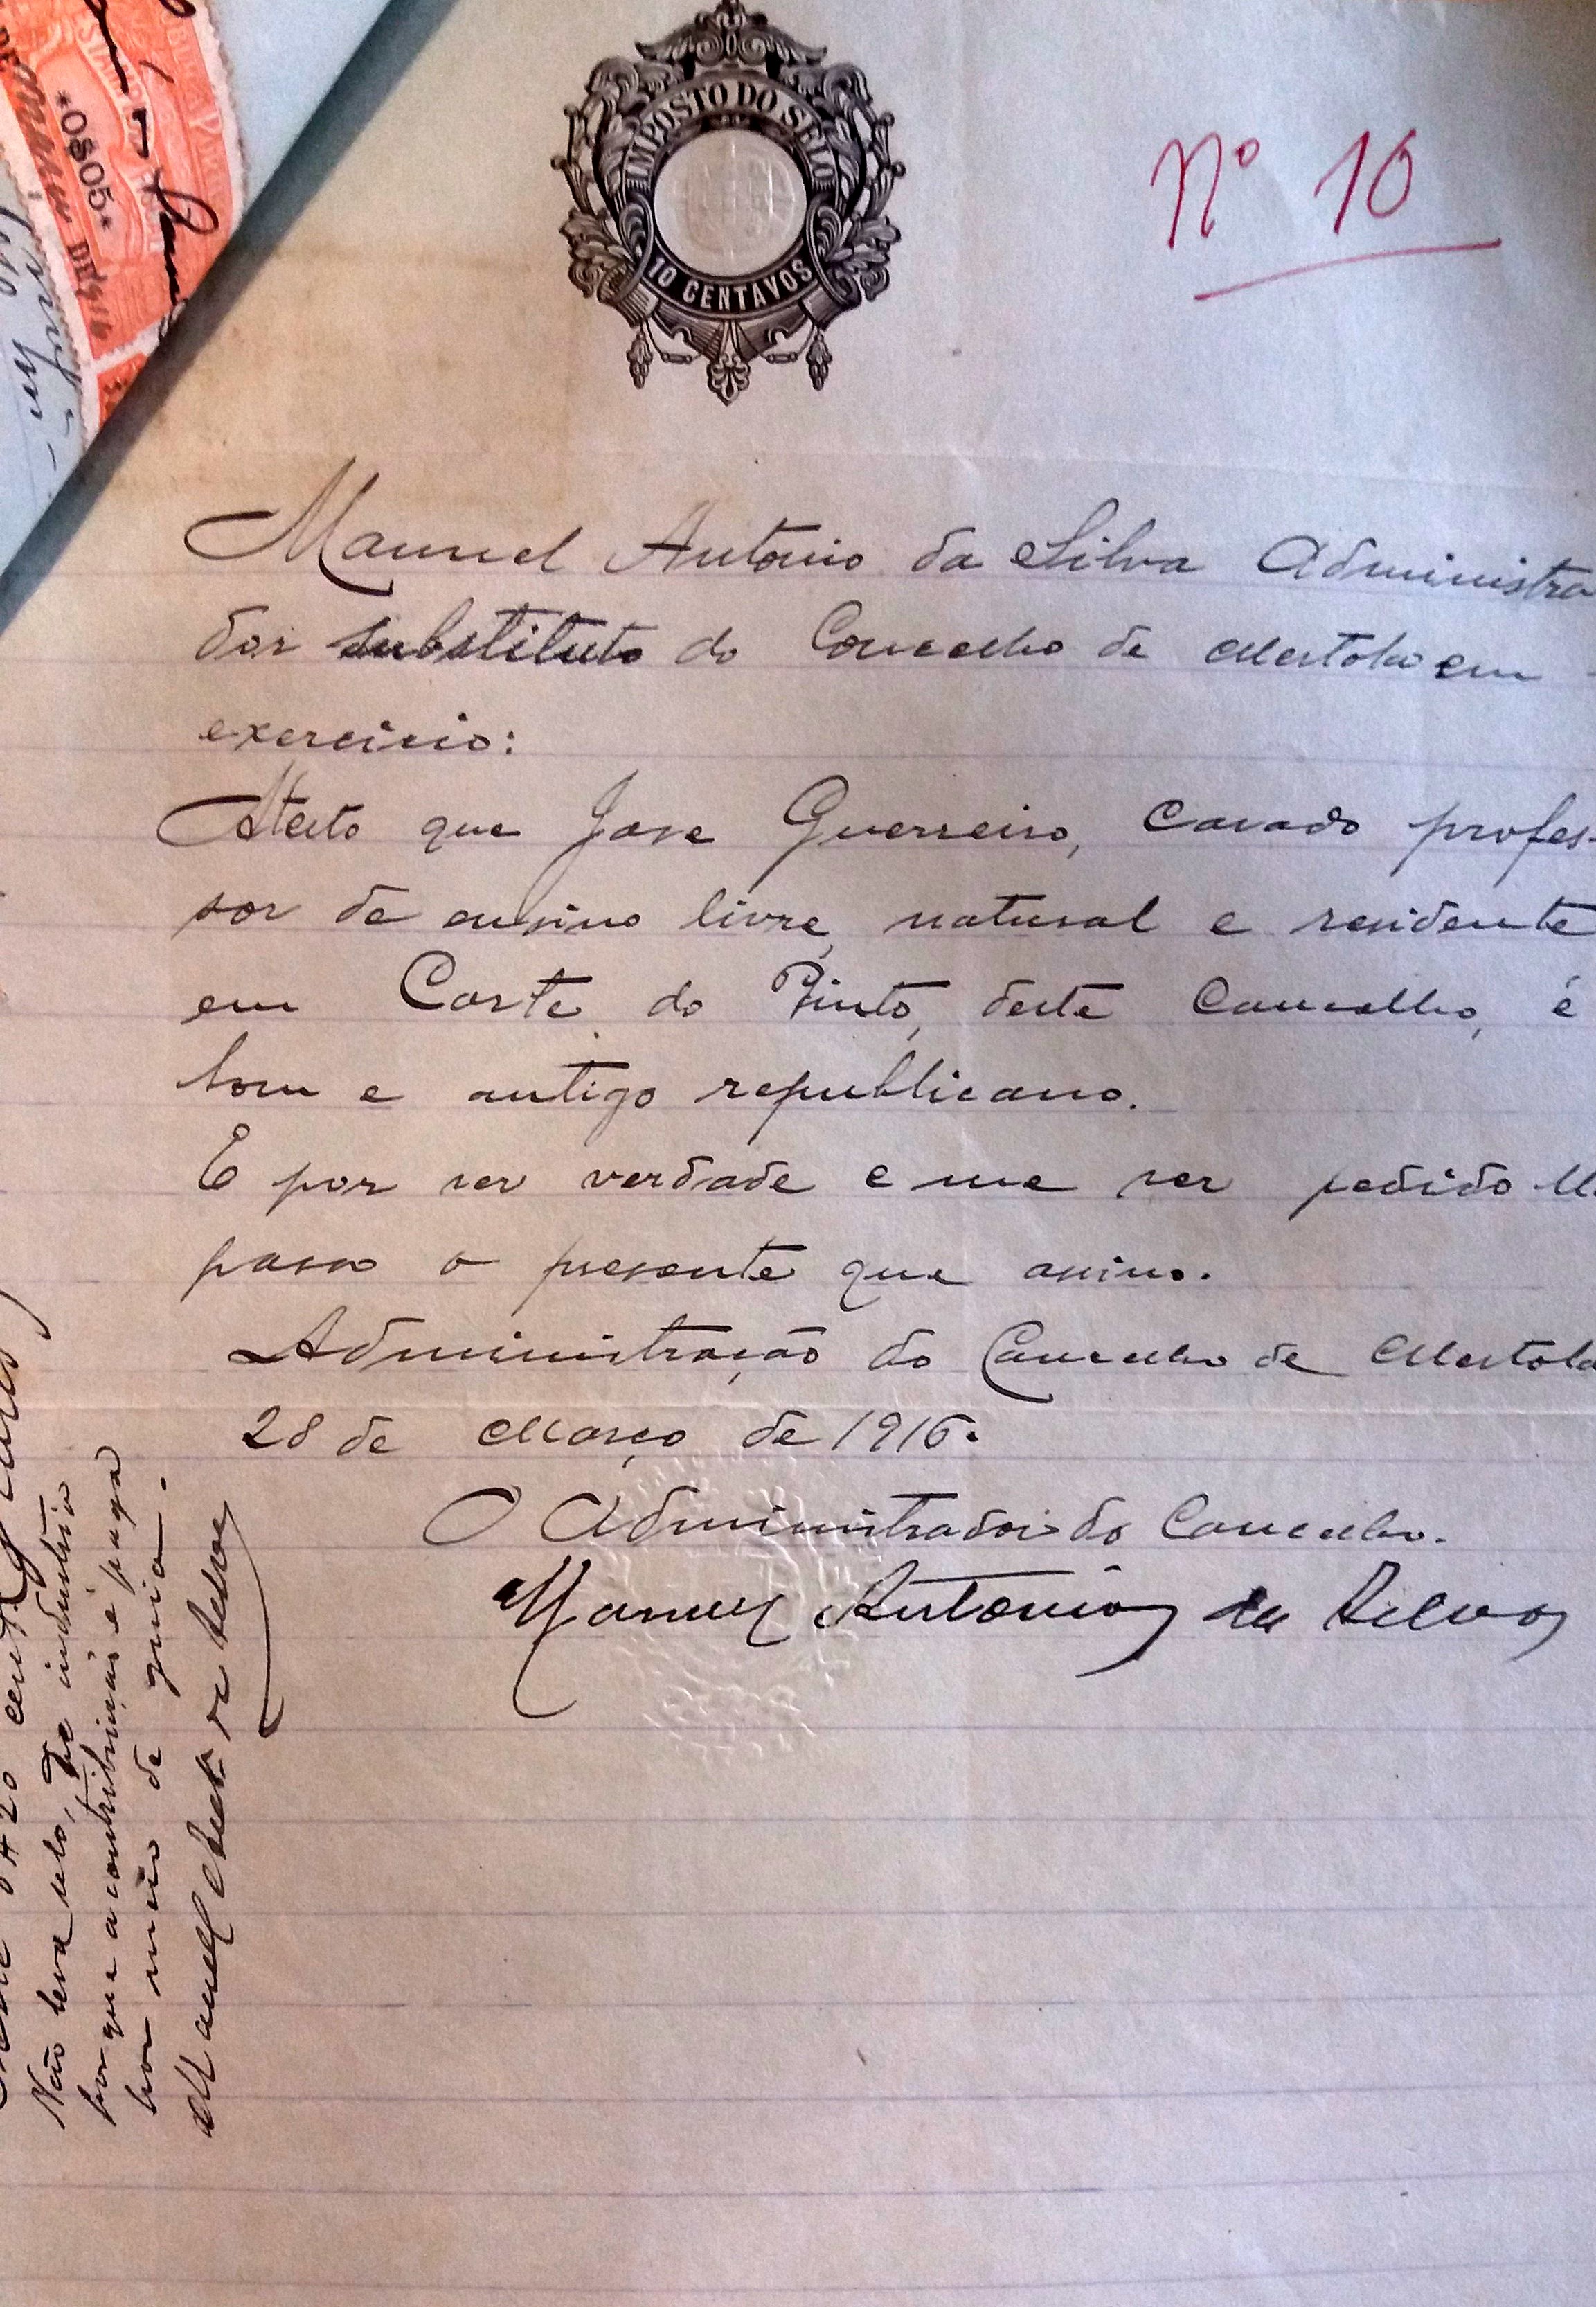 IMPOSTO DO SELO
10 CENTAVOS
Nº 10
*0$05*
Manuel Antonio da Silva Administra
dor substituto do Concelho de Mertola em
exercicio:
Atesto que Jose Guerreiro, casado profes-
sor de ensino livre, natural e residente
em Corte do Pinto, deste Concelho, é
bom e antigo republicano.
E por ser verdade e me ser pedido
passo o presente que assino.
Administração do Concelho de Mertola
28 de Março de 1916.
O Administrador do Concelho.
Manuel Antonio da Silva
Não leva selo, de industria
por que a contribuição é paga
por meio de guia.